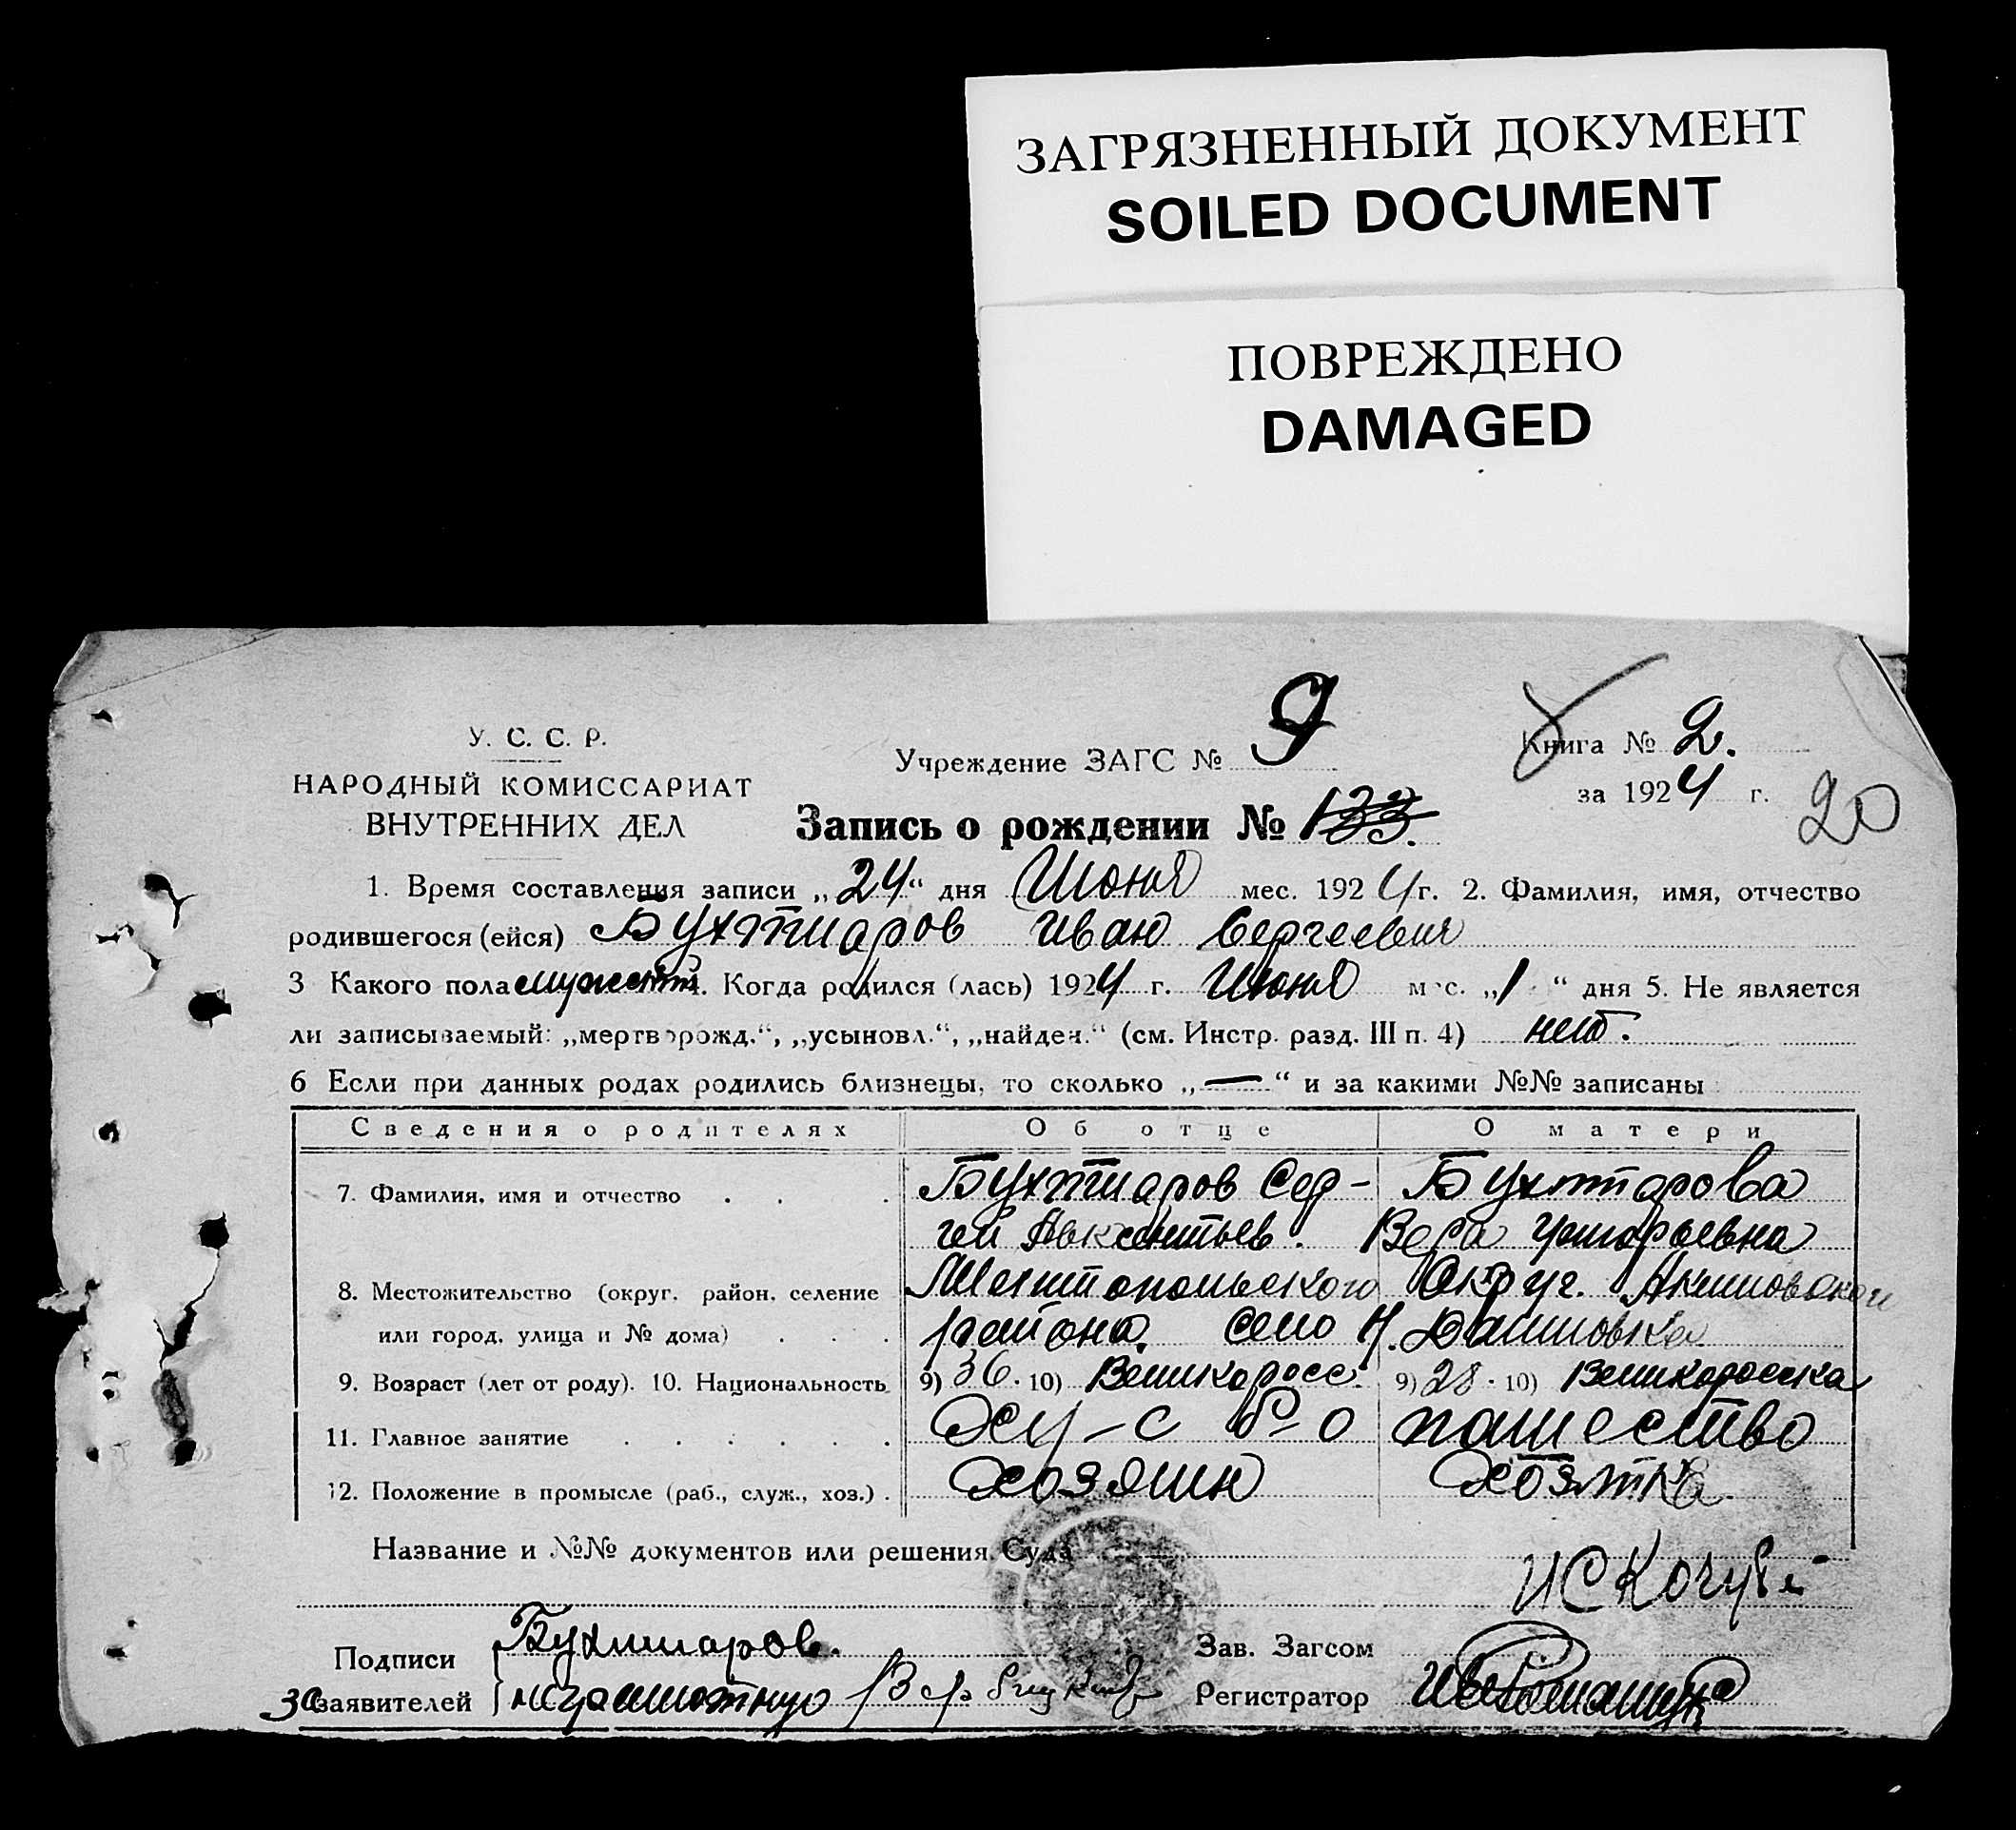 ЗАГРЯЗНЕННЫЙ ДОКУМЕНТ
SOILED DOCUMENT
ПОВРЕЖДЕНО
DAMAGED
У. С. С. Р.
НАРОДНЫЙ КОМИССАРИАТ
ВНУТРЕННИХ ДЕЛ
Учреждение ЗАГС № 9
Книга № 2.
за 1924 г.
20
Запись о рождении № 133.
1. Время составления записи „24“ дня Июня мес. 1924 г. 2. Фамилия, имя, отчество
родившегося (ейся) Бухтиаров Иван Сергеевич
3 Какого пола мужской 4. Когда родился (лась) 1924 г. Июня мес. „1“ дня 5. Не является
ли записываемый: „мертворожд.“, „усыновл.“, „найден.“ (см. Инстр. разд. III п. 4) нет.
6 Если при данных родах родились близнецы, то сколько „—“ и за какими №№ записаны
Сведения о родителях Об отце О матери
7. Фамилия, имя и отчество Бухтиаров Сер- Бухтарова
гей Авксентьев. Вера Григорьевна
8. Местожительство (округ, район, селение Мелитопольского Округ. Акимовской
или город, улица и № дома) района. село Н. Даниловка
9. Возраст (лет от роду). 10. Национальность 9) 36. 10) Великоросс. 9) 28. 10) Великоросска
11. Главное занятие с б-о пашество
12. Положение в промысле (раб., служ., хоз.) хозяин хозятка
Название и №№ документов или решения Суда
Подписи Бухтиаров. Зав. Загсом
за заявителей неграмотную Регистратор